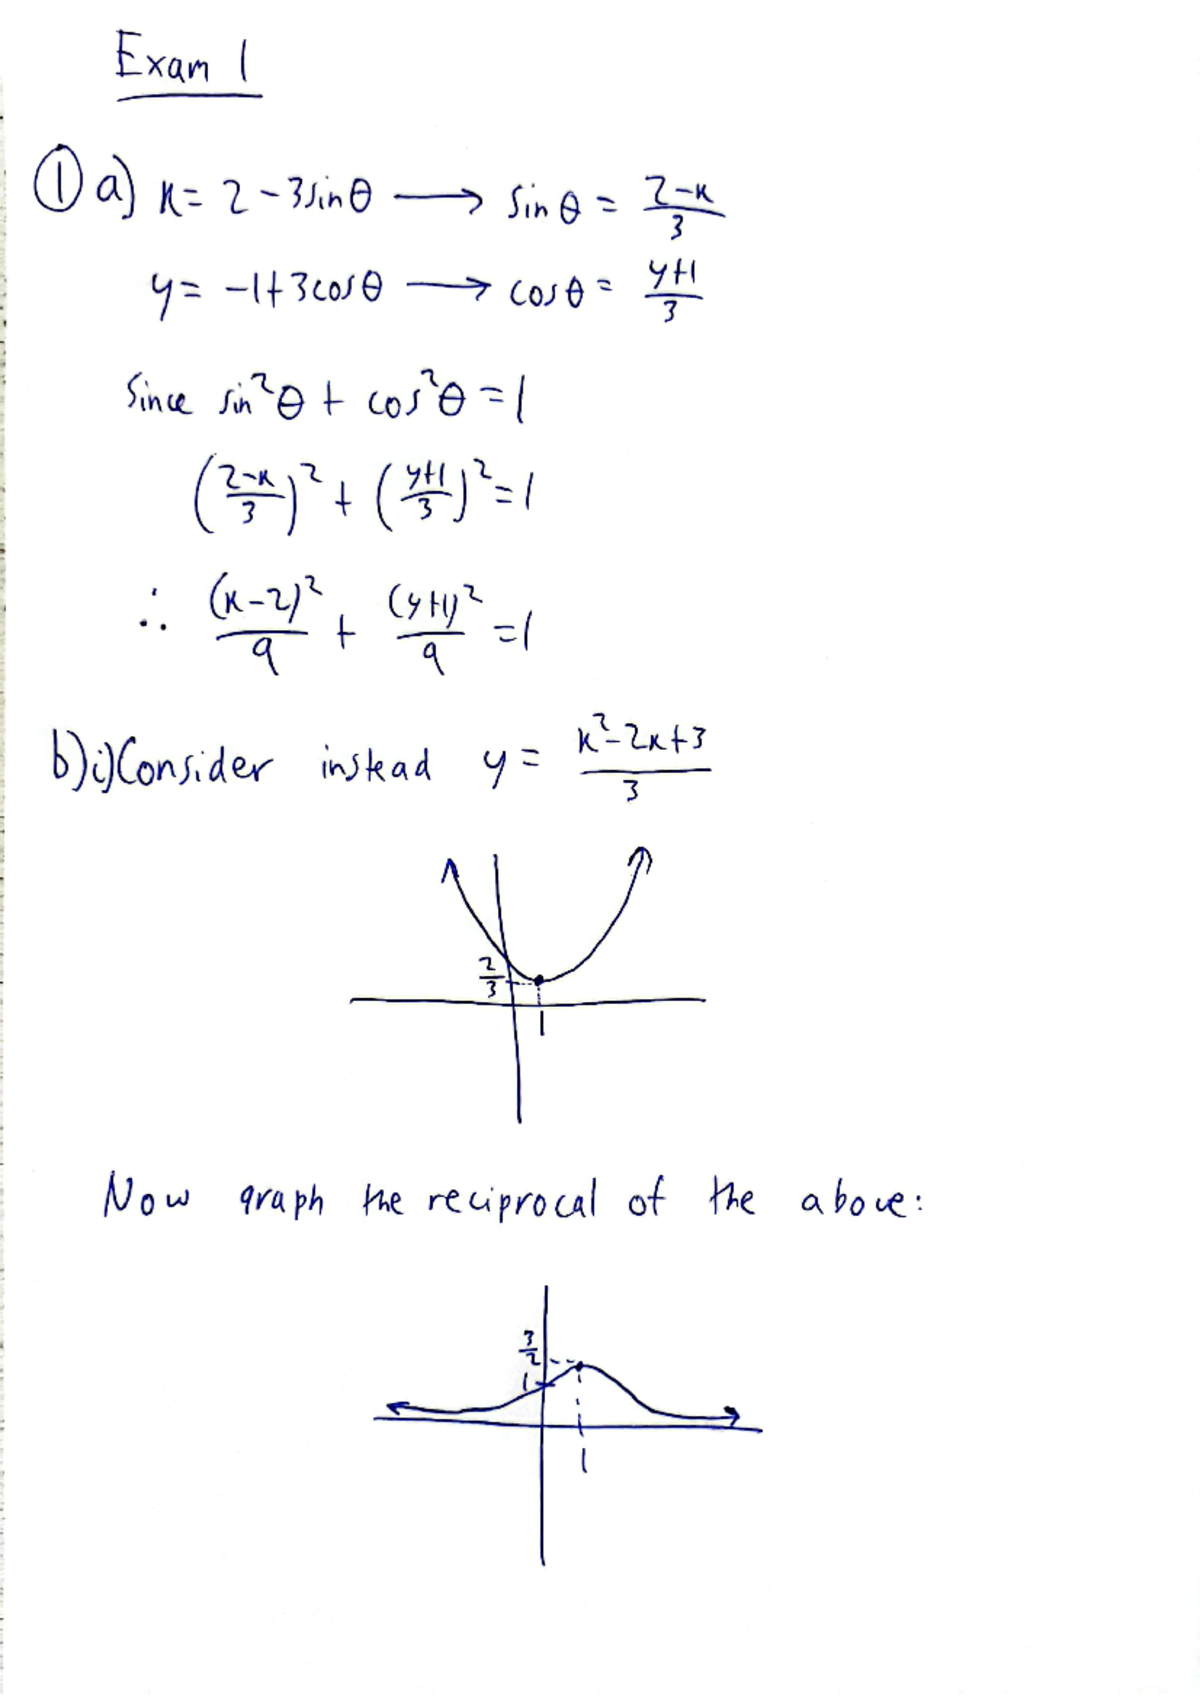 Exam 1
① a) x = 2 - 3sinθ ⟶ sinθ = (2-x)/3
y = -1+3cosθ ⟶ cosθ = (y+1)/3
Since sin²θ + cos²θ = 1
((2-x)/3)² + ((y+1)/3)² = 1
∴ (x-2)²/9 + (y+1)²/9 = 1
b)i) Consider instead y = (x²-2x+3)/3
2/3
1
Now graph the reciprocal of the above:
3/2
1
1